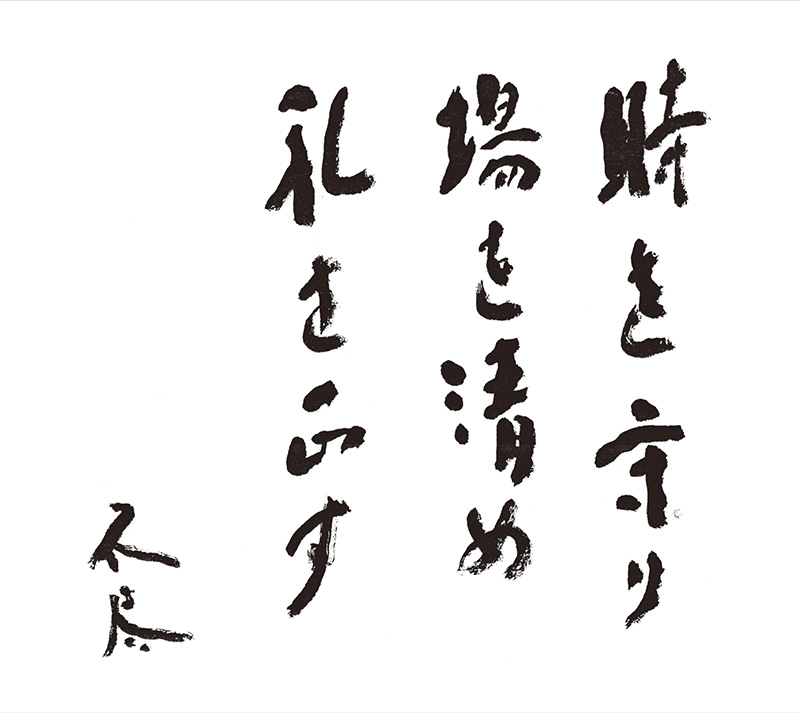 時を守り
場を清め
礼を正す
不尽